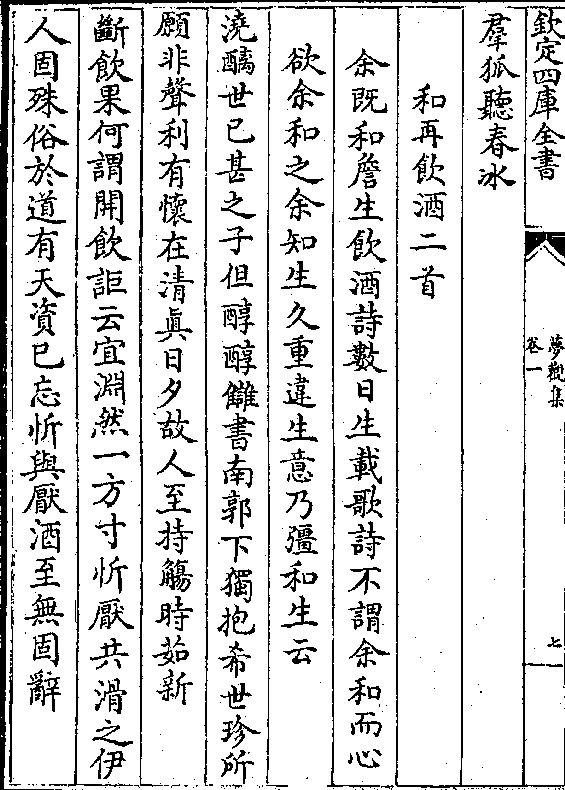 欽定四庫全書
夢觀集
卷一
七
羣狐聽春冰
和再飲酒二首
余既和詹生飲酒詩數日生載歌詩不謂余和而心
欲余和之余知生久重違生意乃彊和生云
澆醨世已甚之子但醇醇讎書南郭下獨抱希世珍所
願非聲利有懷在清眞日夕故人至持觴時茹新
斷飲果何謂開飲詎云宜淵然一方寸忻厭共滑之伊
人固殊俗於道有天資已忘忻與厭酒至無固辭